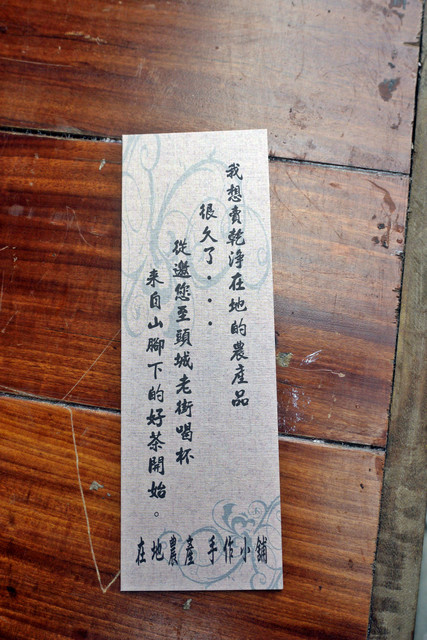 我想賣乾淨在地的農產品
很久了...
從邀您至頭城老街喝杯
來自山腳下的好茶開始。
在地農產 手作小舖